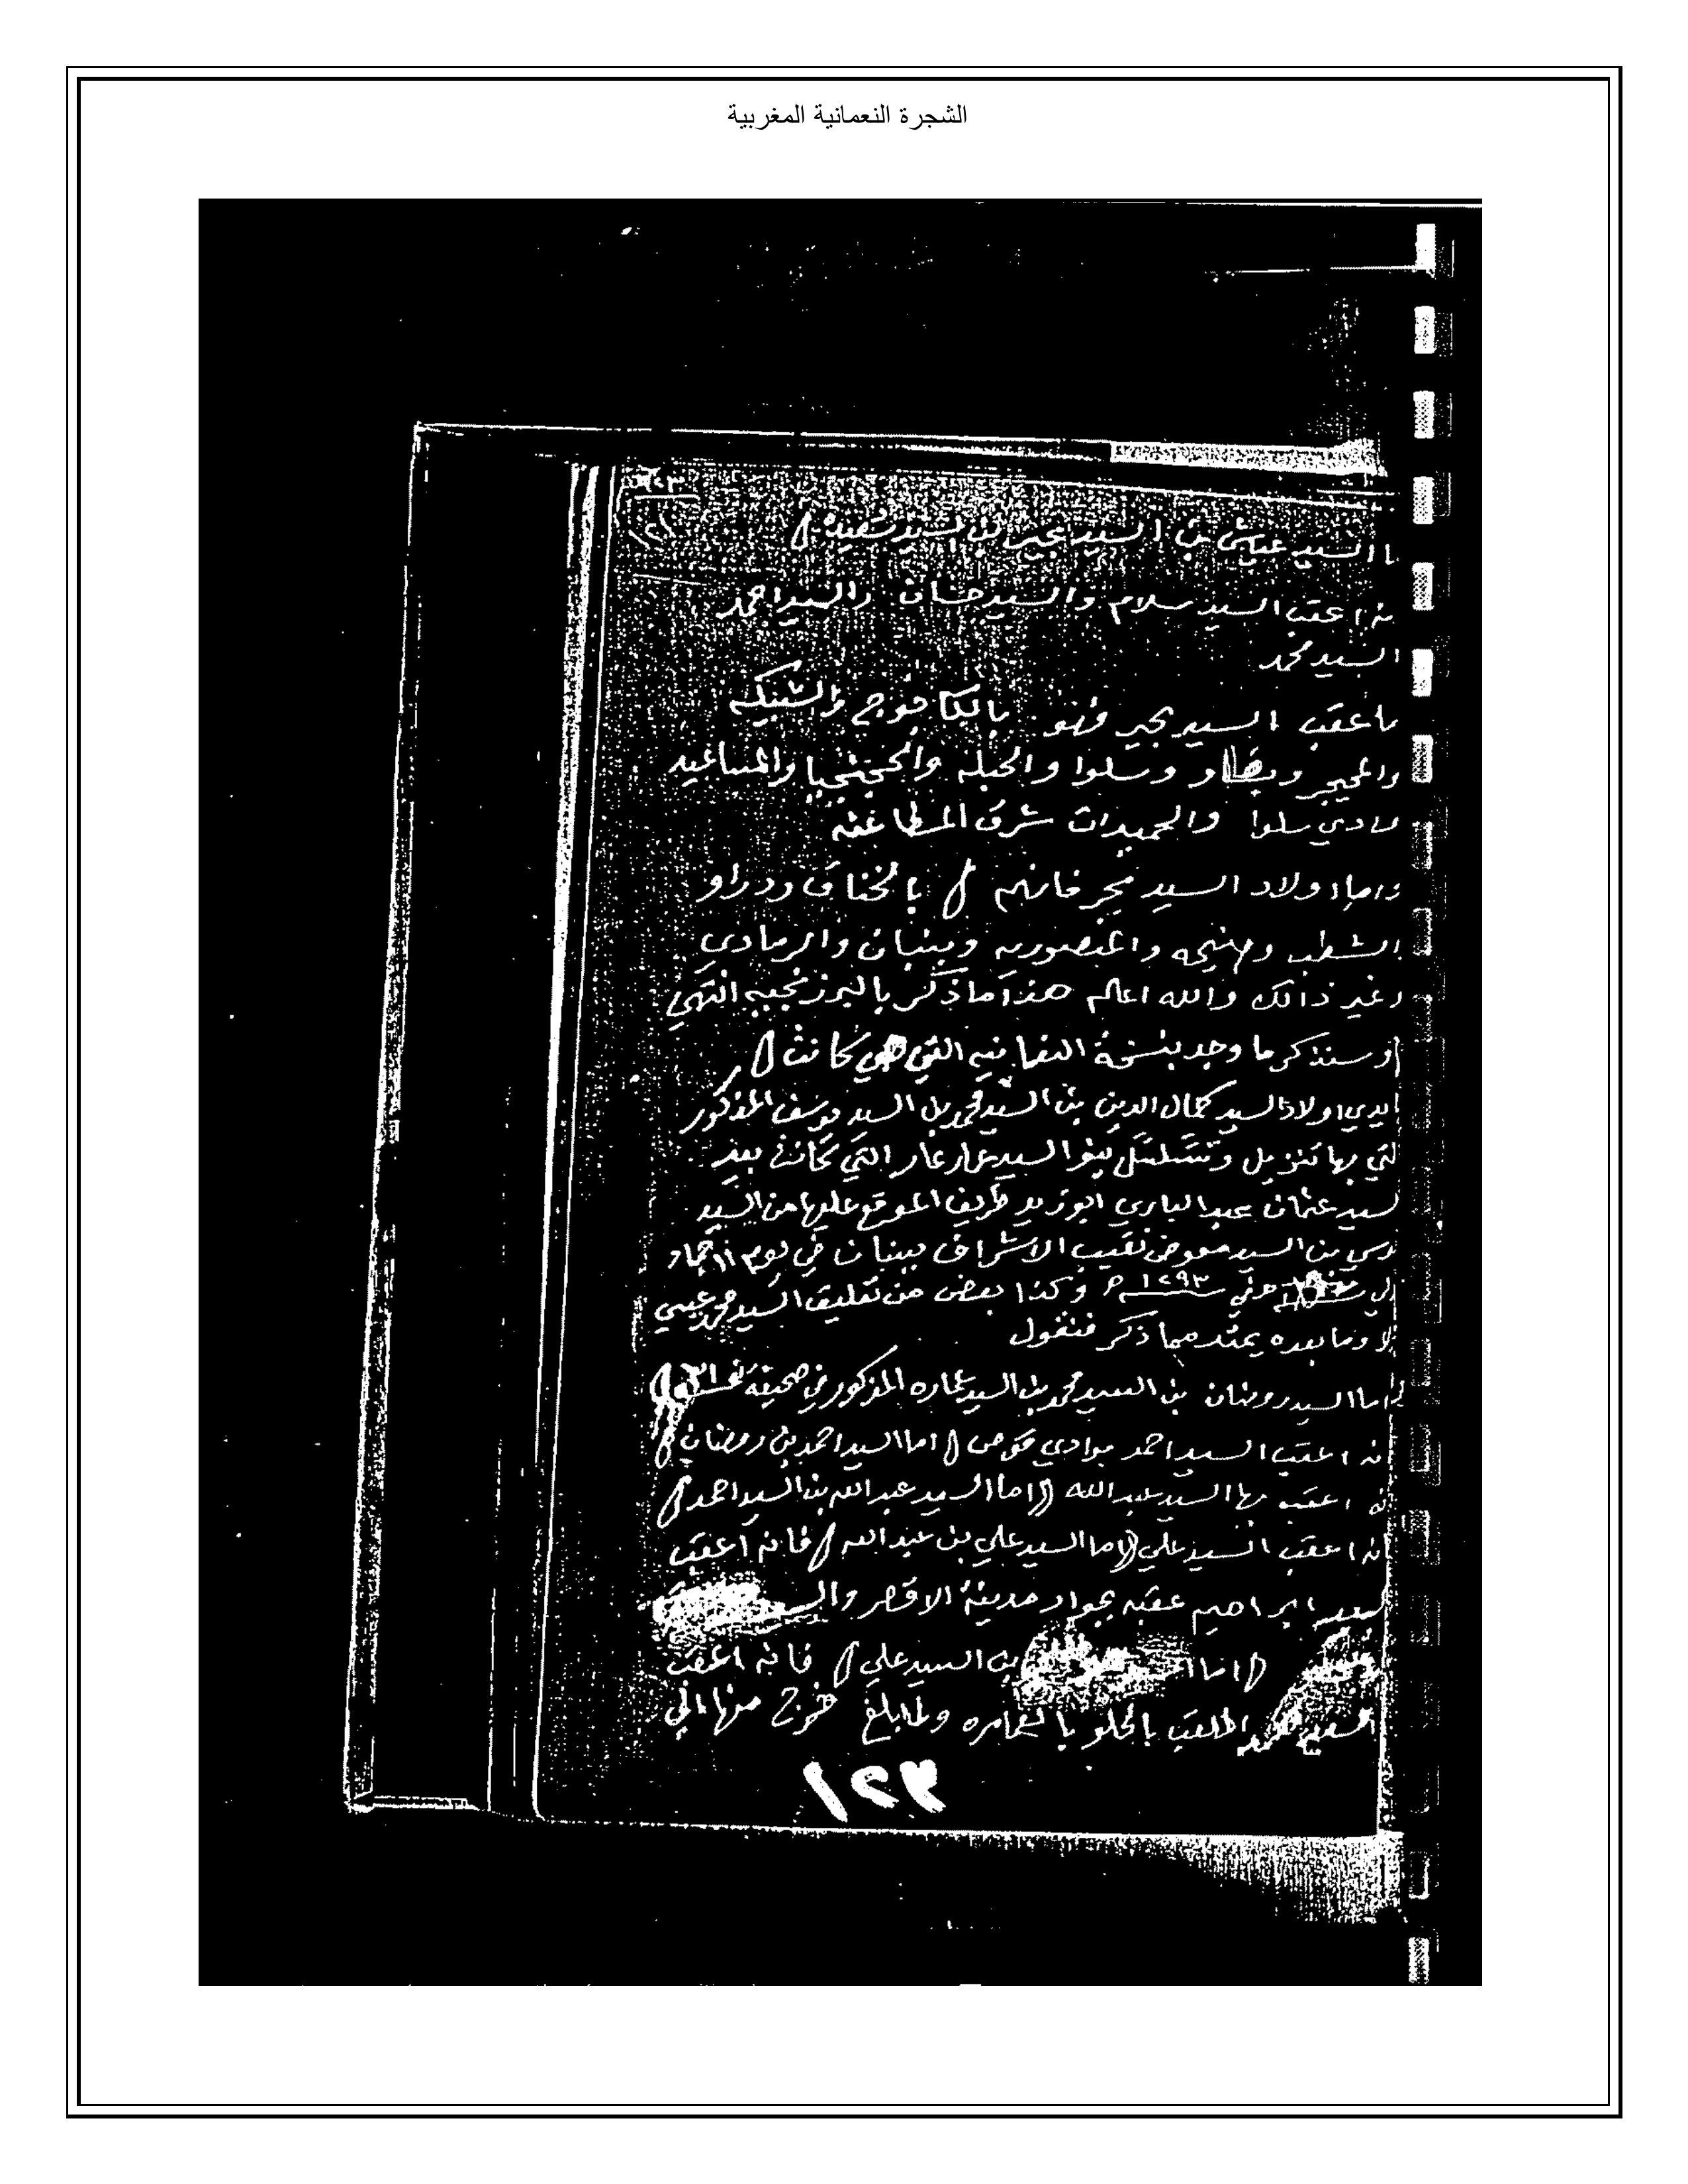 الشجرة النعمانية المغربية
السيد بن السيد بحير بن السيد
اعقب السيد سلام والسيد حسان والسيد احمد
السيد محمد
اعقب السيد بحير فهو والشبيكه
وسلوا والحبله والمساعيد
سلوا والحميدات شرق المطاعنه
واما اولاد السيد فانهم بالخناق ودراو
الشطب ومنيحه والمنصوريه وبنبان والرمادى
غير ذالك والله اعلم هذا ما ذكر بالبرزنجيه انتهي
وسنذكر ما وجد بنسخة النعمانيه التي هي كانت
ايدي اولاد السيد كمال الدين بن السيد محمد بن السيد يوسف المذكور
لتي بها تنزيل وتسلسل بنوا السيد التي كانت بيد
لسيد عثمان عبد الباري ابوزيد الموقع عليها من السيد
بن السيد معوض نقيب الاشراف ببنبان في يوم ١١ جماد
وفي ١٢٩٣ وكذا بعض من تعليق السيد محمد عيسي
وما بعده يمتد مما ذكر فنقول
اما السيد رمضان بن السيد محمد بن السيد عماره المذكور في صحيفة
انه اعقب السيد احمد بوادي قوص اما السيد احمد بن رمضان
انه اعقب بها السيد عبد الله اما السيد عبد الله بن السيد احمد
انه اعقب السيد علي اما السيد علي بن عبد الله فانه اعقب
السيد ابراهيم عقبه بجوار مدينة الاقصر
اما بن السيد علي فانه اعقب
السيد محمد الملقب بالحلو ولما بلغ خرج منها الي
١٢٣